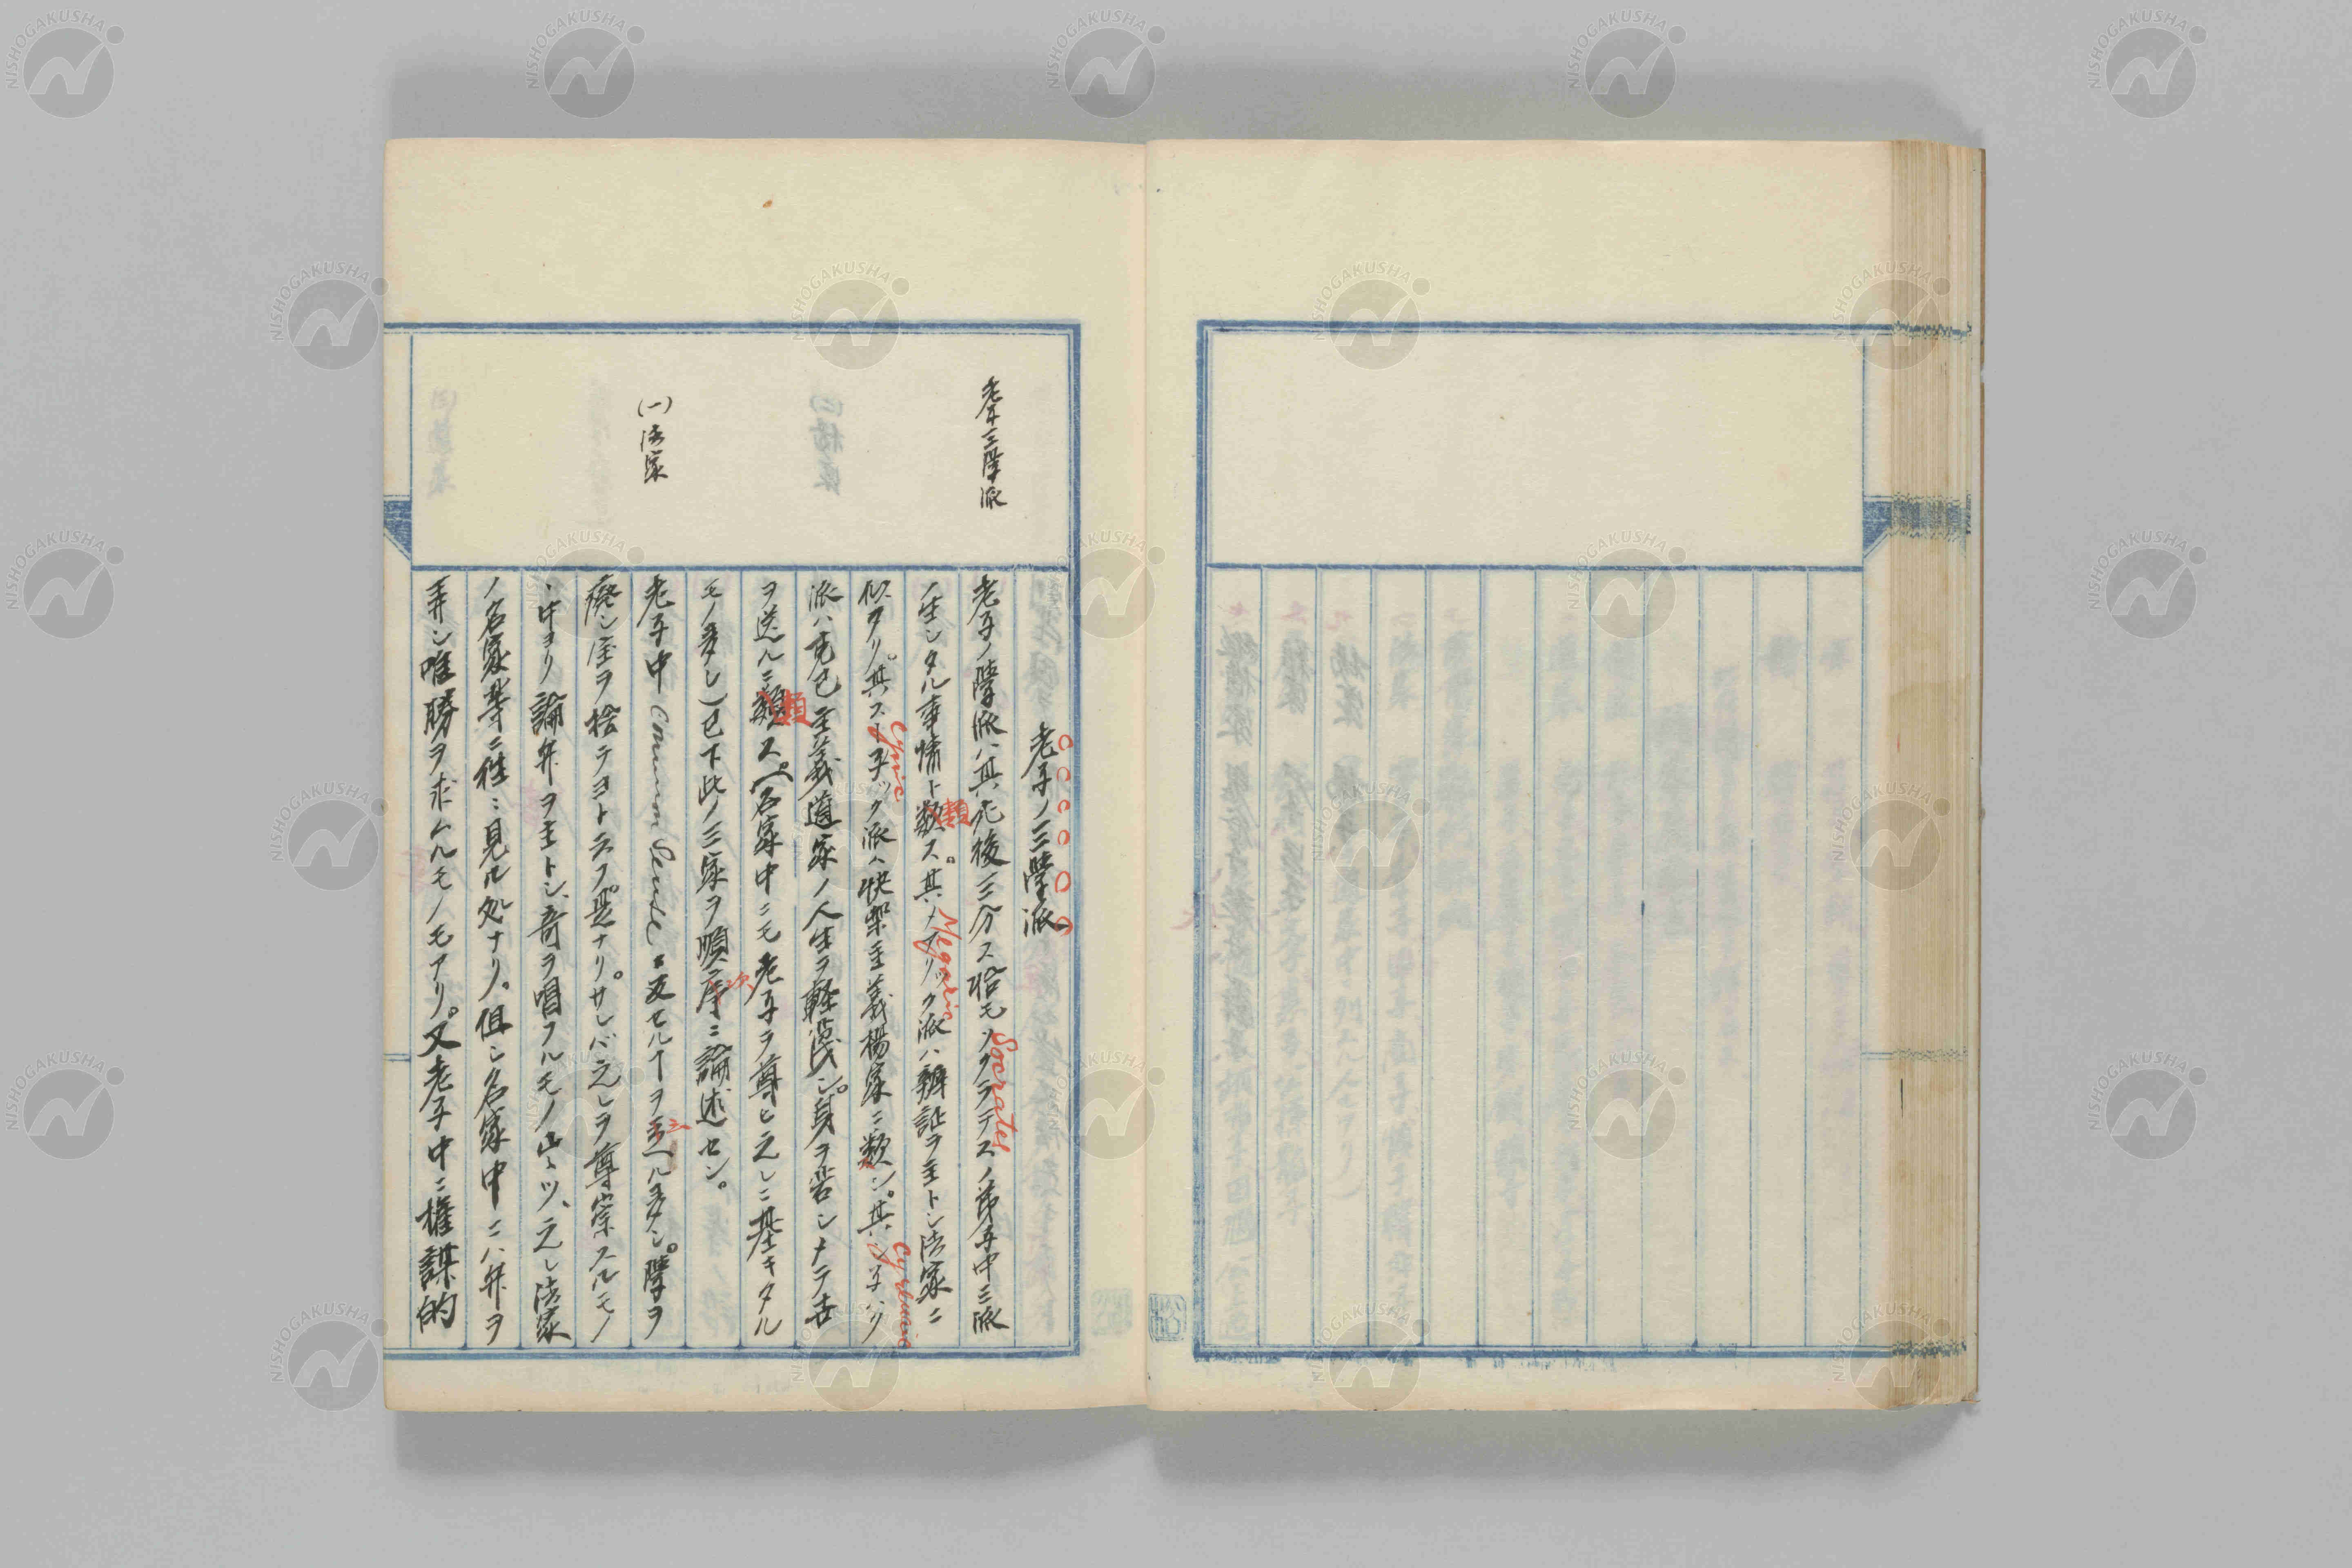 老子三學派
老子ノ三學派
老子ノ學派ハ其死後三分ス恰モソクラテスノ弟子中三派
Socrates
ノ生シタル事情ト類ス。其メガリック派ハ辨証ヲ主トシ法家ニ
Megaric
似タリ。其ストイック派ハ快樂主義楊家ニ類シ。其シニック
Cynic
Cyrenaic
派ハ克己主義道家ノ人生ヲ軽蔑シ。身ヲ苦シメテ世
ヲ送ルニ類ス。(名家中ニモ老子ヲ尊ヒ之レニ基キタル
モノ多シ)已下此ノ三家ヲ順次ニ論述セン。
(一)法家
老子中Common Senseニ反セルヿヲ云ヘル多シ。學ヲ
廃シ
ヲ捨テヨト云フ是ナリ。サレバ之レヲ尊崇スルモノ
ヽ中ヨリ論弁ヲ主トシ、奇ヲ唱フルモノ出ヽツ、之レ法家
ノ名家等ニ往々見ル処ナリ。但シ名家中ニハ弁ヲ
弄シ唯勝ヲ求ムルモノモアリ。又老子中ニ権謀的